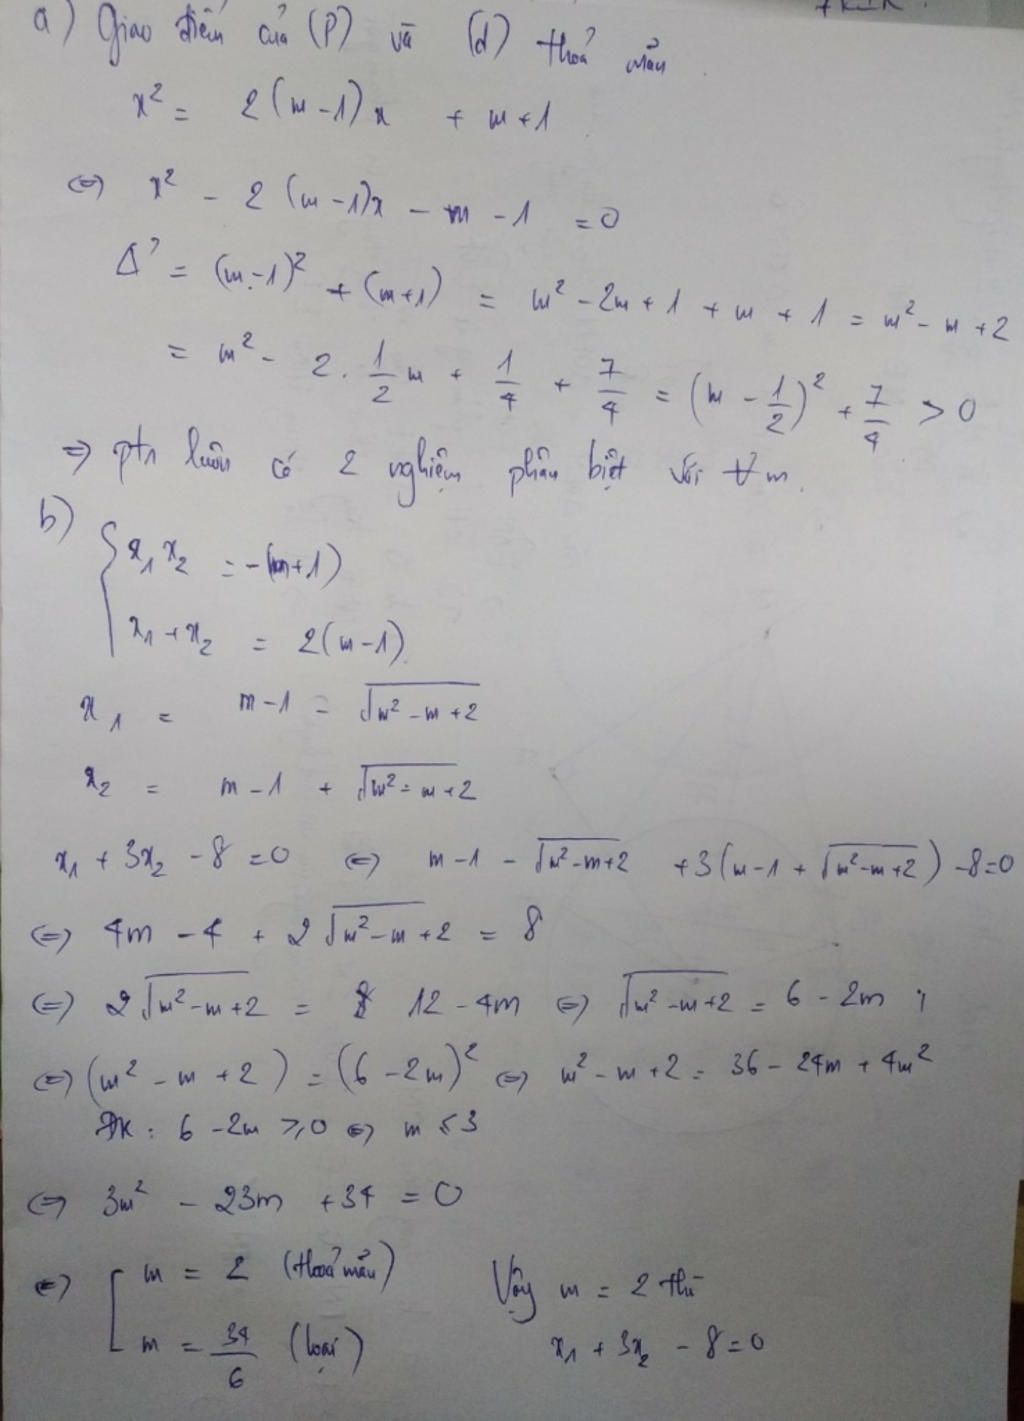 a) Giao điểm của (P) và (d) thoả mãn
x² = 2(m-1)x + m+1
⇔ x² - 2(m-1)x - m - 1 = 0
Δ' = (m-1)² + (m+1) = m² - 2m + 1 + m + 1 = m² - m + 2
= m² - 2. 1/2 m + 1/4 + 7/4 = (m - 1/2)² + 7/4 > 0
⇒ ptr luôn có 2 nghiệm phân biệt với ∀ m.
b) { x₁x₂ = -(m+1)
x₁ + x₂ = 2(m-1)
x₁ = m-1 - √(m² - m + 2)
x₂ = m-1 + √(m² - m + 2)
x₁ + 3x₂ - 8 = 0 ⇔ m-1 - √(m²-m+2) + 3(m-1 + √(m²-m+2)) - 8 = 0
⇔ 4m - 4 + 2√(m² - m + 2) = 8
⇔ 2√(m² - m + 2) = 12 - 4m ⇔ √(m² - m + 2) = 6 - 2m ;
⇔ (m² - m + 2) = (6 - 2m)² ⇔ m² - m + 2 = 36 - 24m + 4m²
ĐK : 6 - 2m ≥ 0 ⇔ m ≤ 3
⇔ 3m² - 23m + 34 = 0
⇔ [ m = 2 (thoả mãn)
m = 34/6 (loại)
Vậy m = 2 thì
x₁ + 3x₂ - 8 = 0